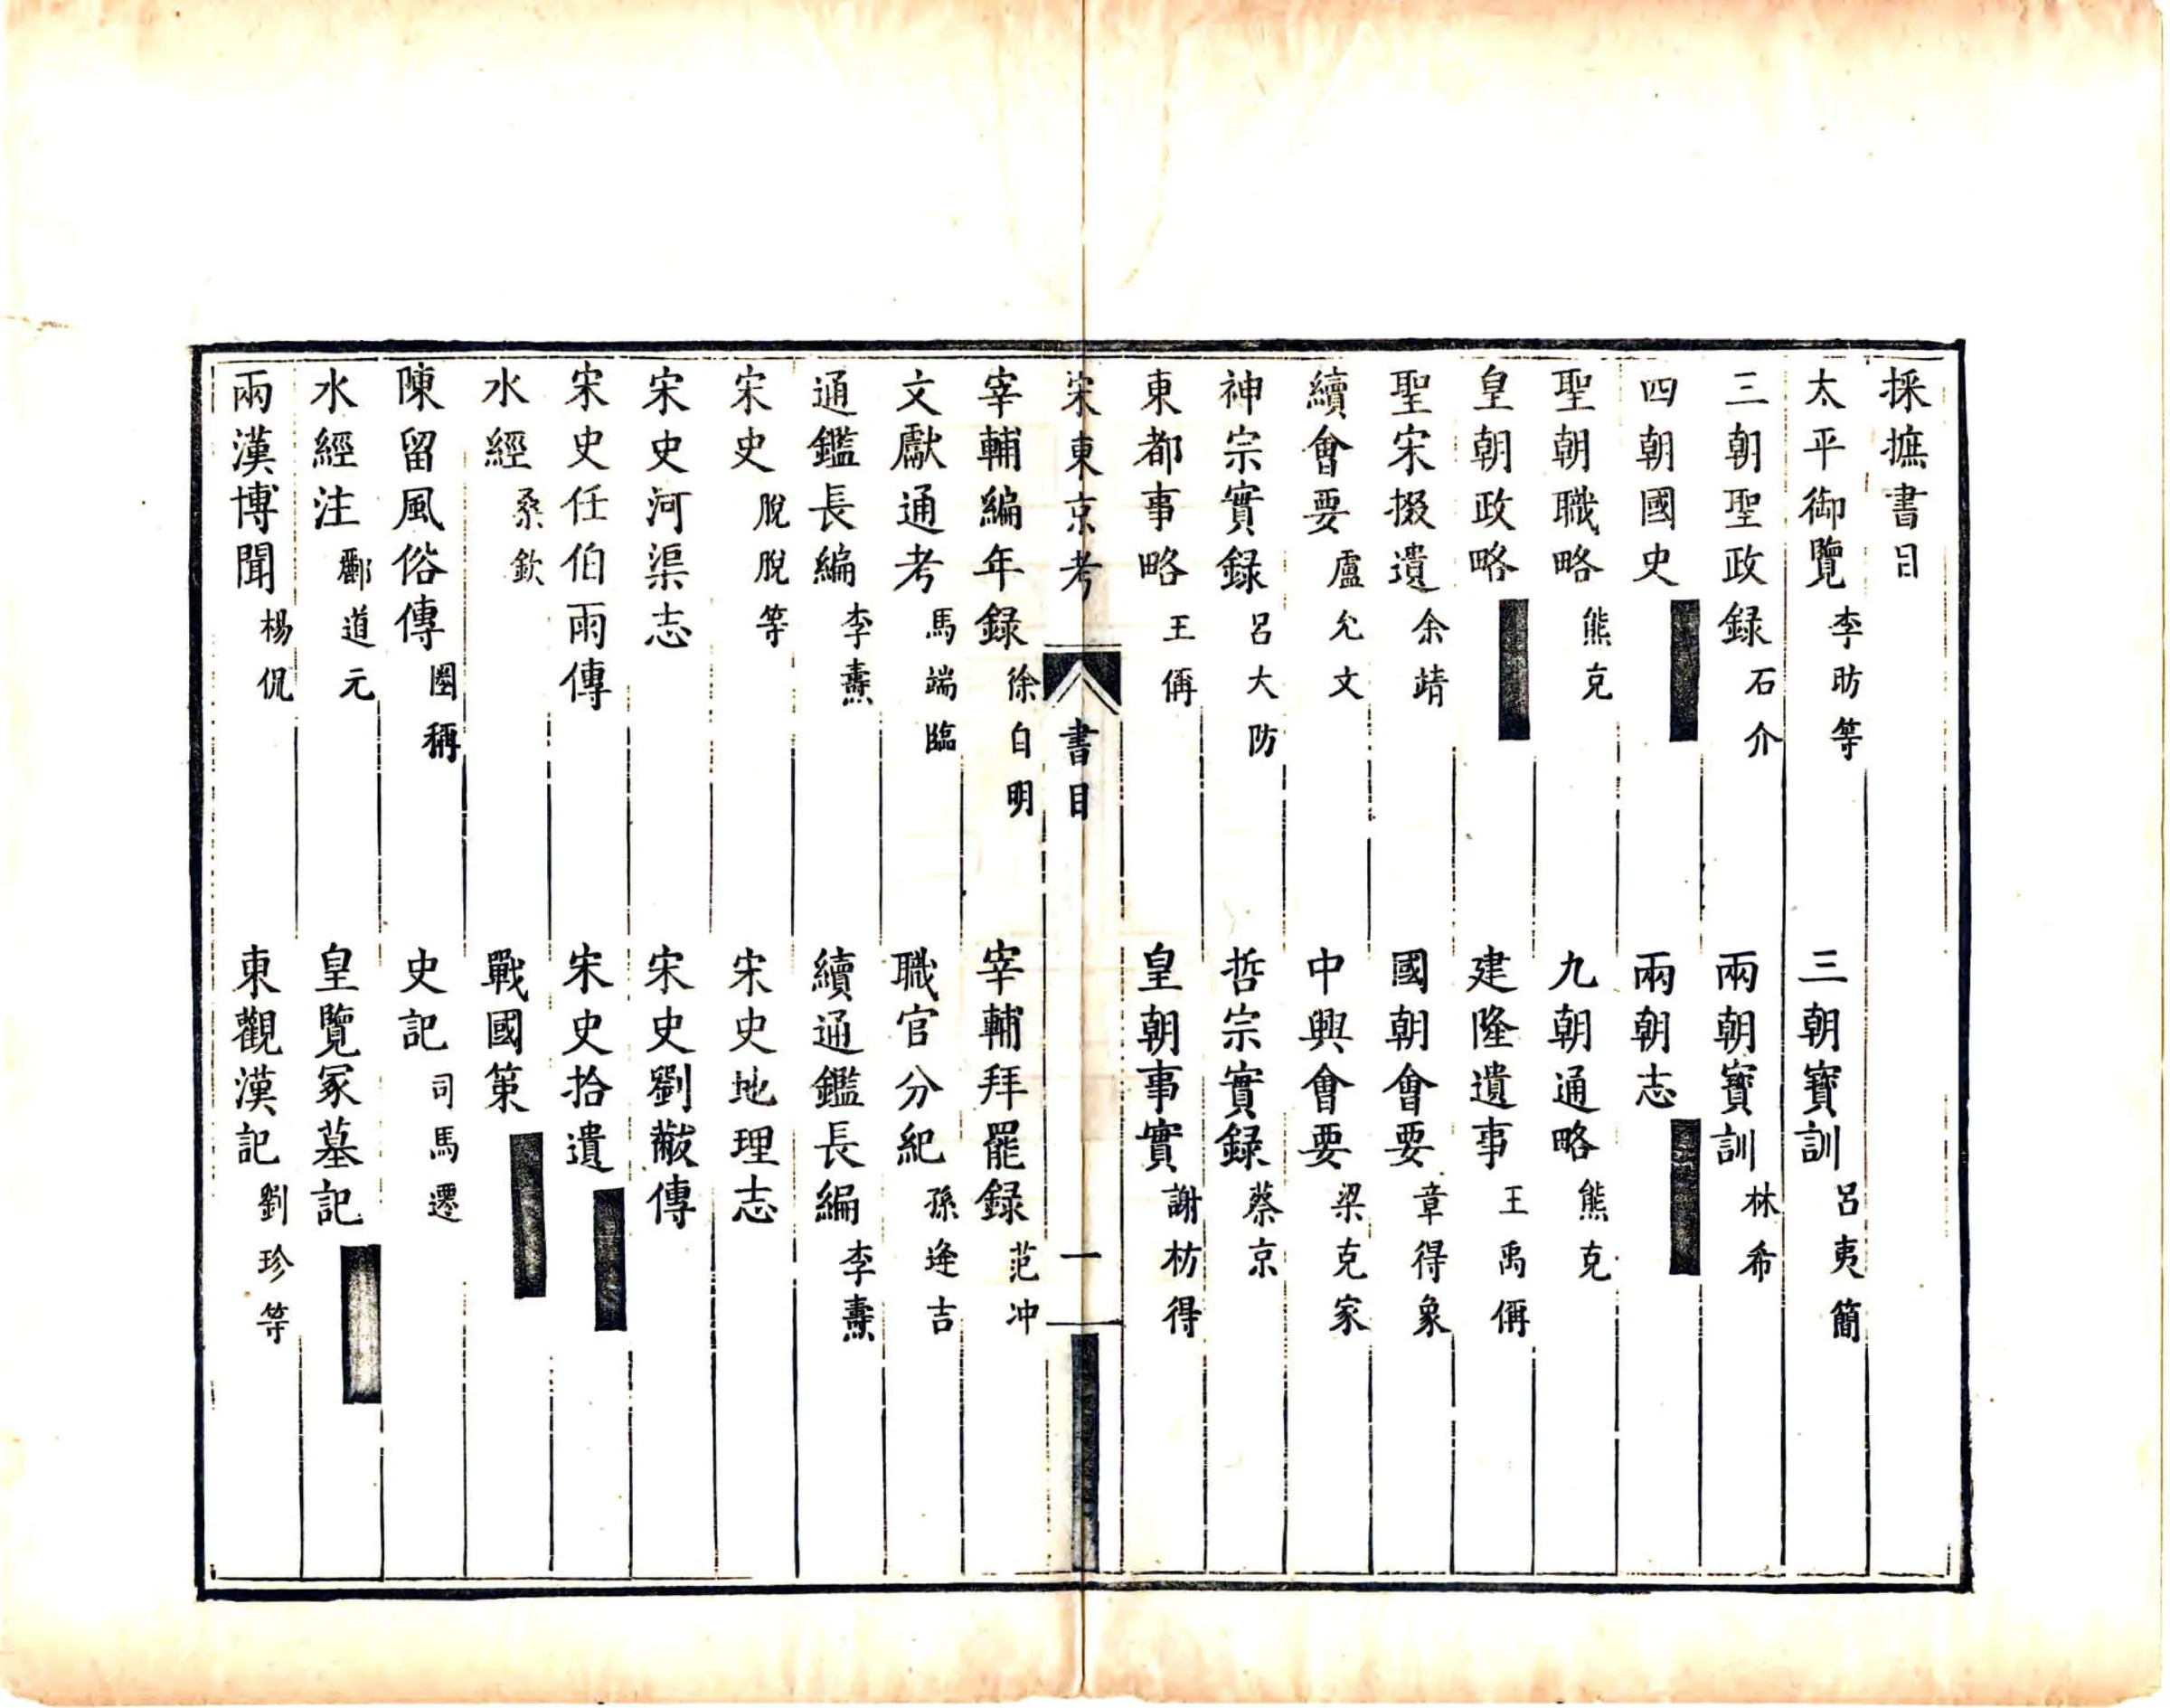 採摭書目
太平御覽 李昉等 三朝寶訓 呂夷簡
三朝聖政録 石介 兩朝寶訓 林希
四朝國史 兩朝志
聖朝職略 熊克 九朝通略 熊克
皇朝政略 建隆遺事 王禹偁
聖宋掇遺 余靖 國朝會要 章得象
續會要 盧允文 中興會要 梁克家
神宗實録 呂大防 哲宗實録 蔡京
東都事略 王偁 皇朝事實 謝枋得
宋東京考 書目 一
宰輔編年録 徐自明 宰輔拜罷録 范冲
文獻通考 馬端臨 職官分紀 孫逄吉
通鑑長編 李燾 續通鑑長編 李燾
宋史 脫脫等 宋史地理志
宋史河渠志 宋史劉黻傳
宋史任伯雨傳 宋史拾遺
水經 桑欽 戰國策
陳留風俗傳 圈稱 史記 司馬遷
水經注 酈道元 皇覽冢墓記
兩漢博聞 楊侃 東觀漢記 劉珍等